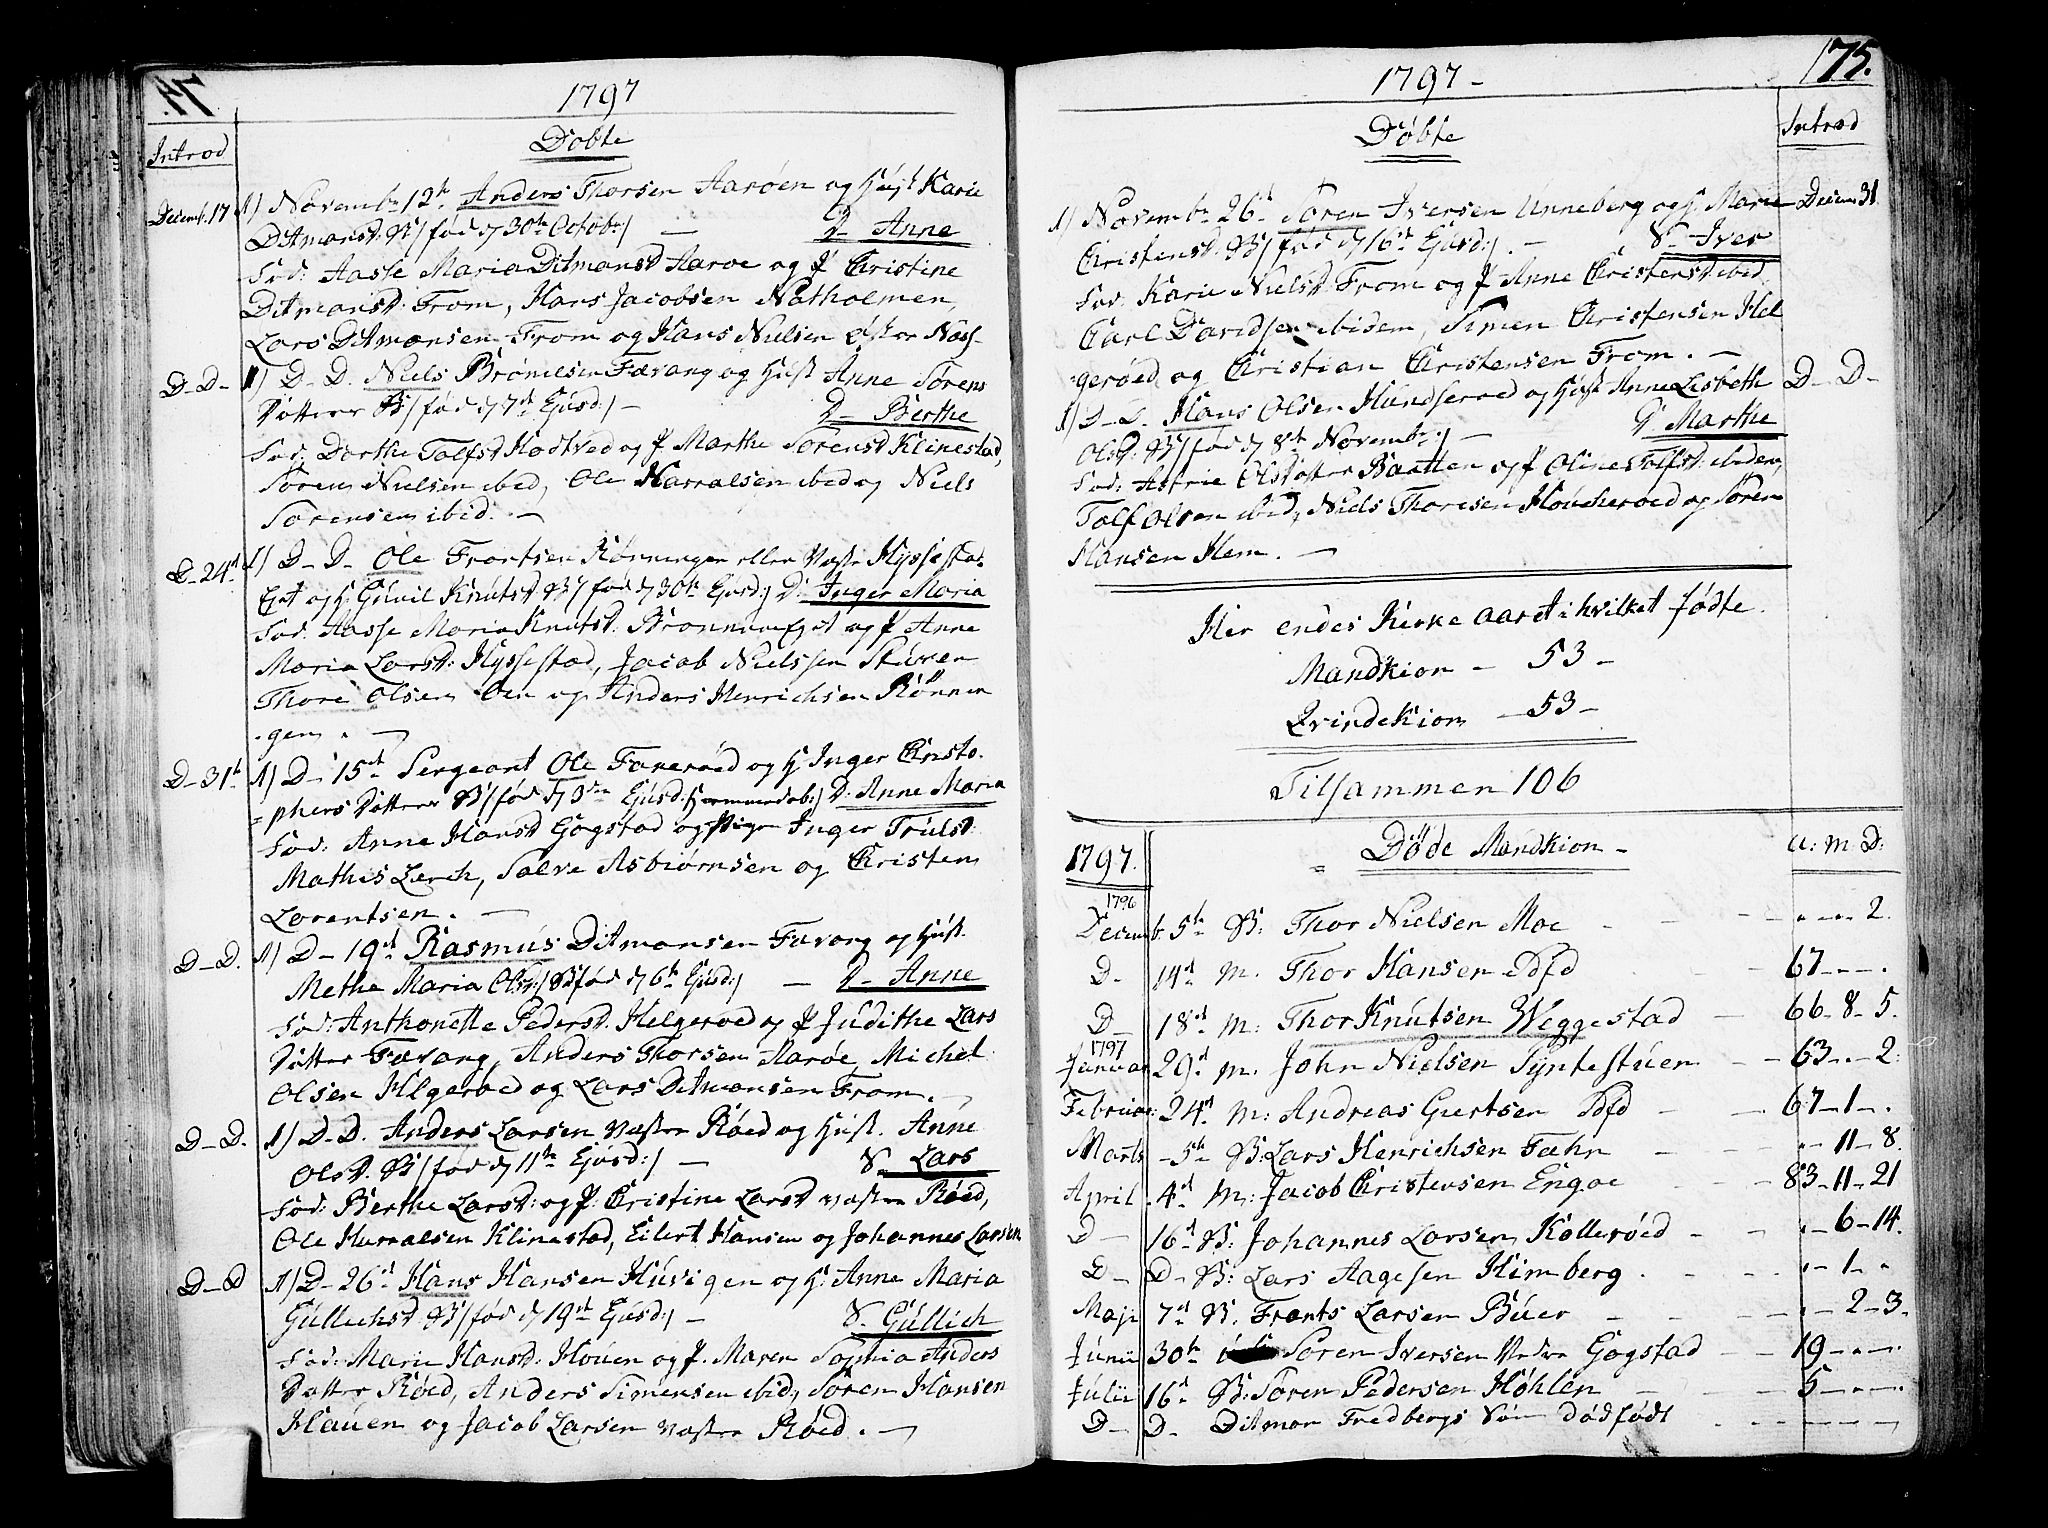 74.
1797
Døbte
Introd
Decemb. 17 1) Novembr 12te Anders Thorsen Aarøen og Hust Karie
Ditmansd. B/ fød d 30te Octobr/ — D. Anne
Fad: Aasse Maria Ditmansd Aaroe og P Christine
Ditmansd: From, Hans Jacobsen Natholmen,
Lars Ditmansen From og Hans Nielsen Øster Næss
D–D– 1) D–D. Niels Brønilsen Færang og Hust Anne Sørens
Datter B/ fød d 7de Ejusd:/ — D– Berthe
Fad: Dorthe Tolfsd Hodtved og P Marthe Sørensd Klinestad,
Søren Nielsen ibid, Ole Harralsen ibid og Niels
Sørensen ibid. —
D–24d 1) D–D– Ole Frantsen Rønningen eller Vestre Hyssestad
Ejet og H. Gunil Knutsd B/ fød d 30te Ejusd:/ D: Inger Maria
Fad: Aasse Maria Knutsd: Brønnum Ejet og P Anne
Maria Larsd: Hyssestad, Jacob Nielssen Stuven
Thore Olsen Oen og Anders Henrichsen Rønnin
gen. —
D–31te 1) D– 15de Sergeant Ole Fanerøed og H Inger Christo
phers Datter B/ fød d 3die Ejusd: hjemmedøbt:/ D: Anne Maria
Fad: Anne Hansd Gogstad og Pige Inger Trulsd:
Mathis Lerch, Salve Asbiørnsen og Christen
Lorentsen. —
D–D. 1) D– 19d Rasmus Ditmansen Færang og Hust.
Methe Maria Olsd:/ B fød d 6te Ejusd:/ — D– Anne
Fad: Anthonette Pedersd. Helgeroed og P Judithe Lars
Datter Færang, Anders Thorsen Aarøe, Michel
Olsen Helgeroed og Lars Ditmansen From. —
D–D. 1) D–D. Anders Larsen Vestre Røed og Hust. Anne
Olsd. B/ fød d 11te Ejusd:/ — S. Lars
Fad: Berthe Larsd: og P. Christine Larsd vestre Røed,
Ole Harralsen Klinestad, Eilert Hansen og Johannes Larsen
D–D 1) D– 26d Hans Hansen Huvigen og H. Anne Maria
Gullichsd B/ fød d 19d Ejusd:/ — S. Gullich
Fad: Marie Hansd: Houen og P. Maren Sophia Anders
Datter Røed, Anders Simensen ibid, Søren Hansen
Hauen og Jacob Larsen vestre Røed. —
175.
1797 –
Døbte
Introd
1) Novembr 26d Søren Iversen Unneberg og H. Marie Decem 31
Christensd B/ fød d 16d Ejusd:/. — S– Iver
Fad: Karie Nielsd From og P Anne Christensd ibid,
Carl Davidsen ibidem, Simen Christensen Hel
gerøed og Christian Christensen From. —
1) D–D. Hans Olsen Hundserød og Hust Anne Lisbeth D–D–
Olsd: B/ fød d 8de Novembr:/ — P. Marthe
Fad: Astrie Olsdatter Baatten og P Oline Tolfsd: ibidem,
Tolf Olsen ibid, Niels Thoresen Houcherød og Søren
Hansen Hem. —
Her endes Kirke aaret i hvilket fødte.
Mandkion – 53 –
Qvindekion – 53 –
Tilsammen 106
1797. Døde Mandkion – a: m: D:
1796
Decemb. 5te B: Thor Nielsen Moe – – – 2.
D– 14d m. Thor Hansen – 67 – – .
D– 18d m: Thor Knutsen Weggestad – 66–8–5.
1797
Januar 29d m. John Nielsen Syntestuen – 63 – – 2:
Februar: 24d m: Andreas Guertsen – 67–1– .
Marts – 5te B: Lars Henrichsen Fæhn – – – 11–8.
April 4d m: Jacob Christensen Engoe – – 83–11–21
D– 16d B: Johannes Larsen Kollerøed – – . – 6–14.
D– D– B: Lars Aagesen Himberg. – – . –1– .
Maji 7d B. Frants Larsen Buer – – . – 2–3.
Junii 30te Søren Iversen Nedre Gogstad – 19 – – .
Julii 16d B: Søren Pedersen Høhlen – – 5 – – .
D– D– Ditman Fredbergs Søn dødfødt